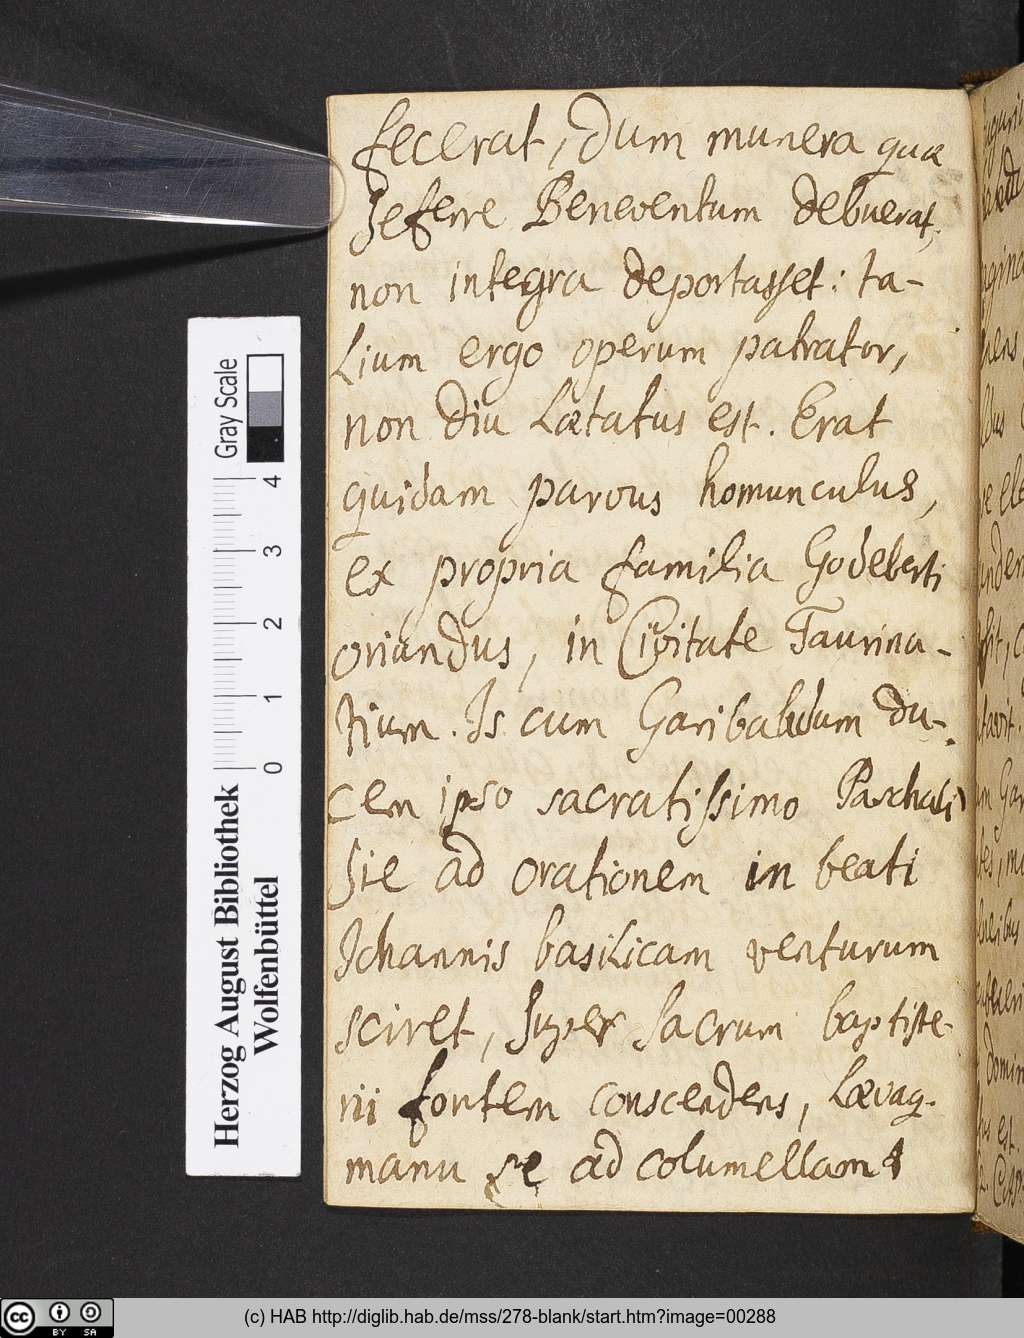 fecerat, dum munera quæ
deferre Beneventum debuerat,
non integra deportasset: ta-
lium ergo operum patrator,
non diu lætatus est. Erat
quidam parvus homunculus,
ex propria familia Godeberti
oriundus, in Civitate Taurina-
tium. Is cum Garibaldum du-
cem ipso sacratissimo Paschali
die ad orationem in beati
Johannis basilicam venturum
sciret, super sacrum baptiste-
rii fontem conscendens, lævaq.
manu se ad columellam
Gray Scale
0 1 2 3 4
Herzog August Bibliothek
Wolfenbüttel
cc BY SA
(c) HAB http://diglib.hab.de/mss/278-blank/start.htm?image=00288